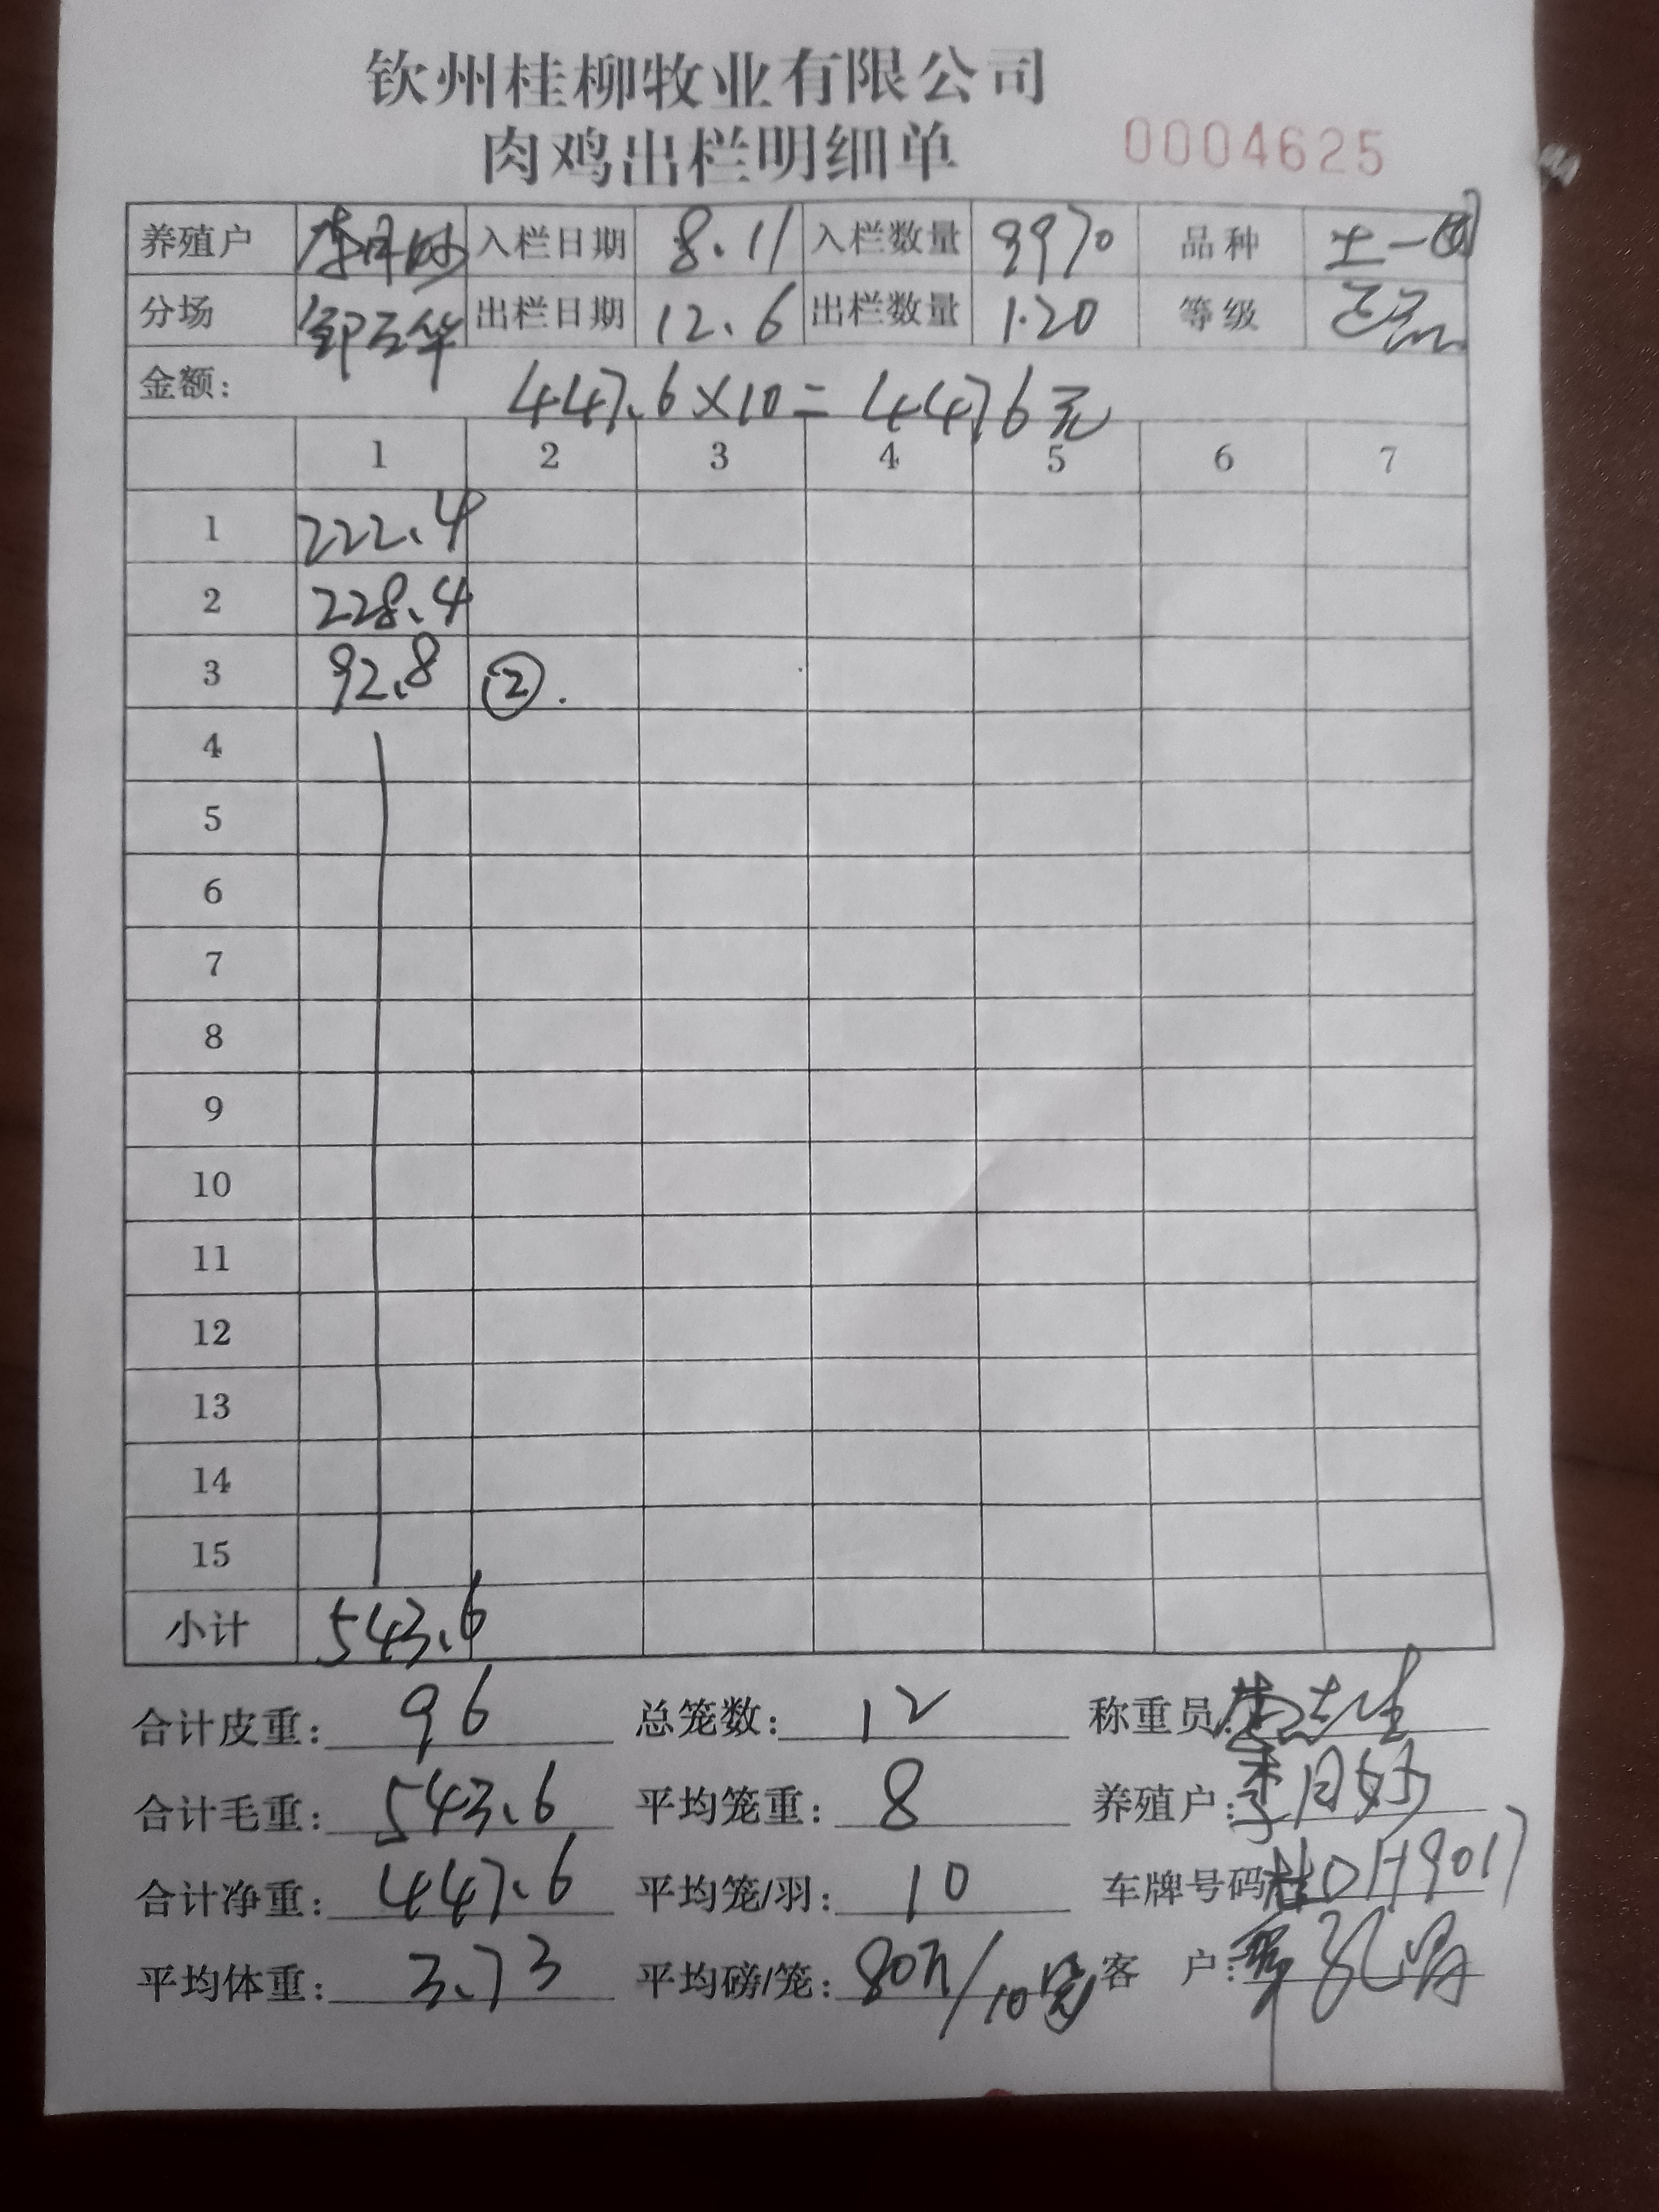 钦州桂柳牧业有限公司
肉鸡出栏明细单 0004625
养殖户 李月好 入栏日期 8.11 入栏数量 9970 品种 土一
分场 出栏日期 12.6 出栏数量 120 等级
金额: 447.6×10=4476元
1 2 3 4 5 6 7
1 222.4
2 228.4
3 92.8 ②.
4
5
6
7
8
9
10
11
12
13
14
15
小计 543.6
合计皮重: 96 总笼数: 12 称重员:
合计毛重: 543.6 平均笼重: 8 养殖户: 李月好
合计净重: 447.6 平均笼/羽: 10 车牌号码 桂DH9017
平均体重: 3.73 平均磅/笼: 客 户: